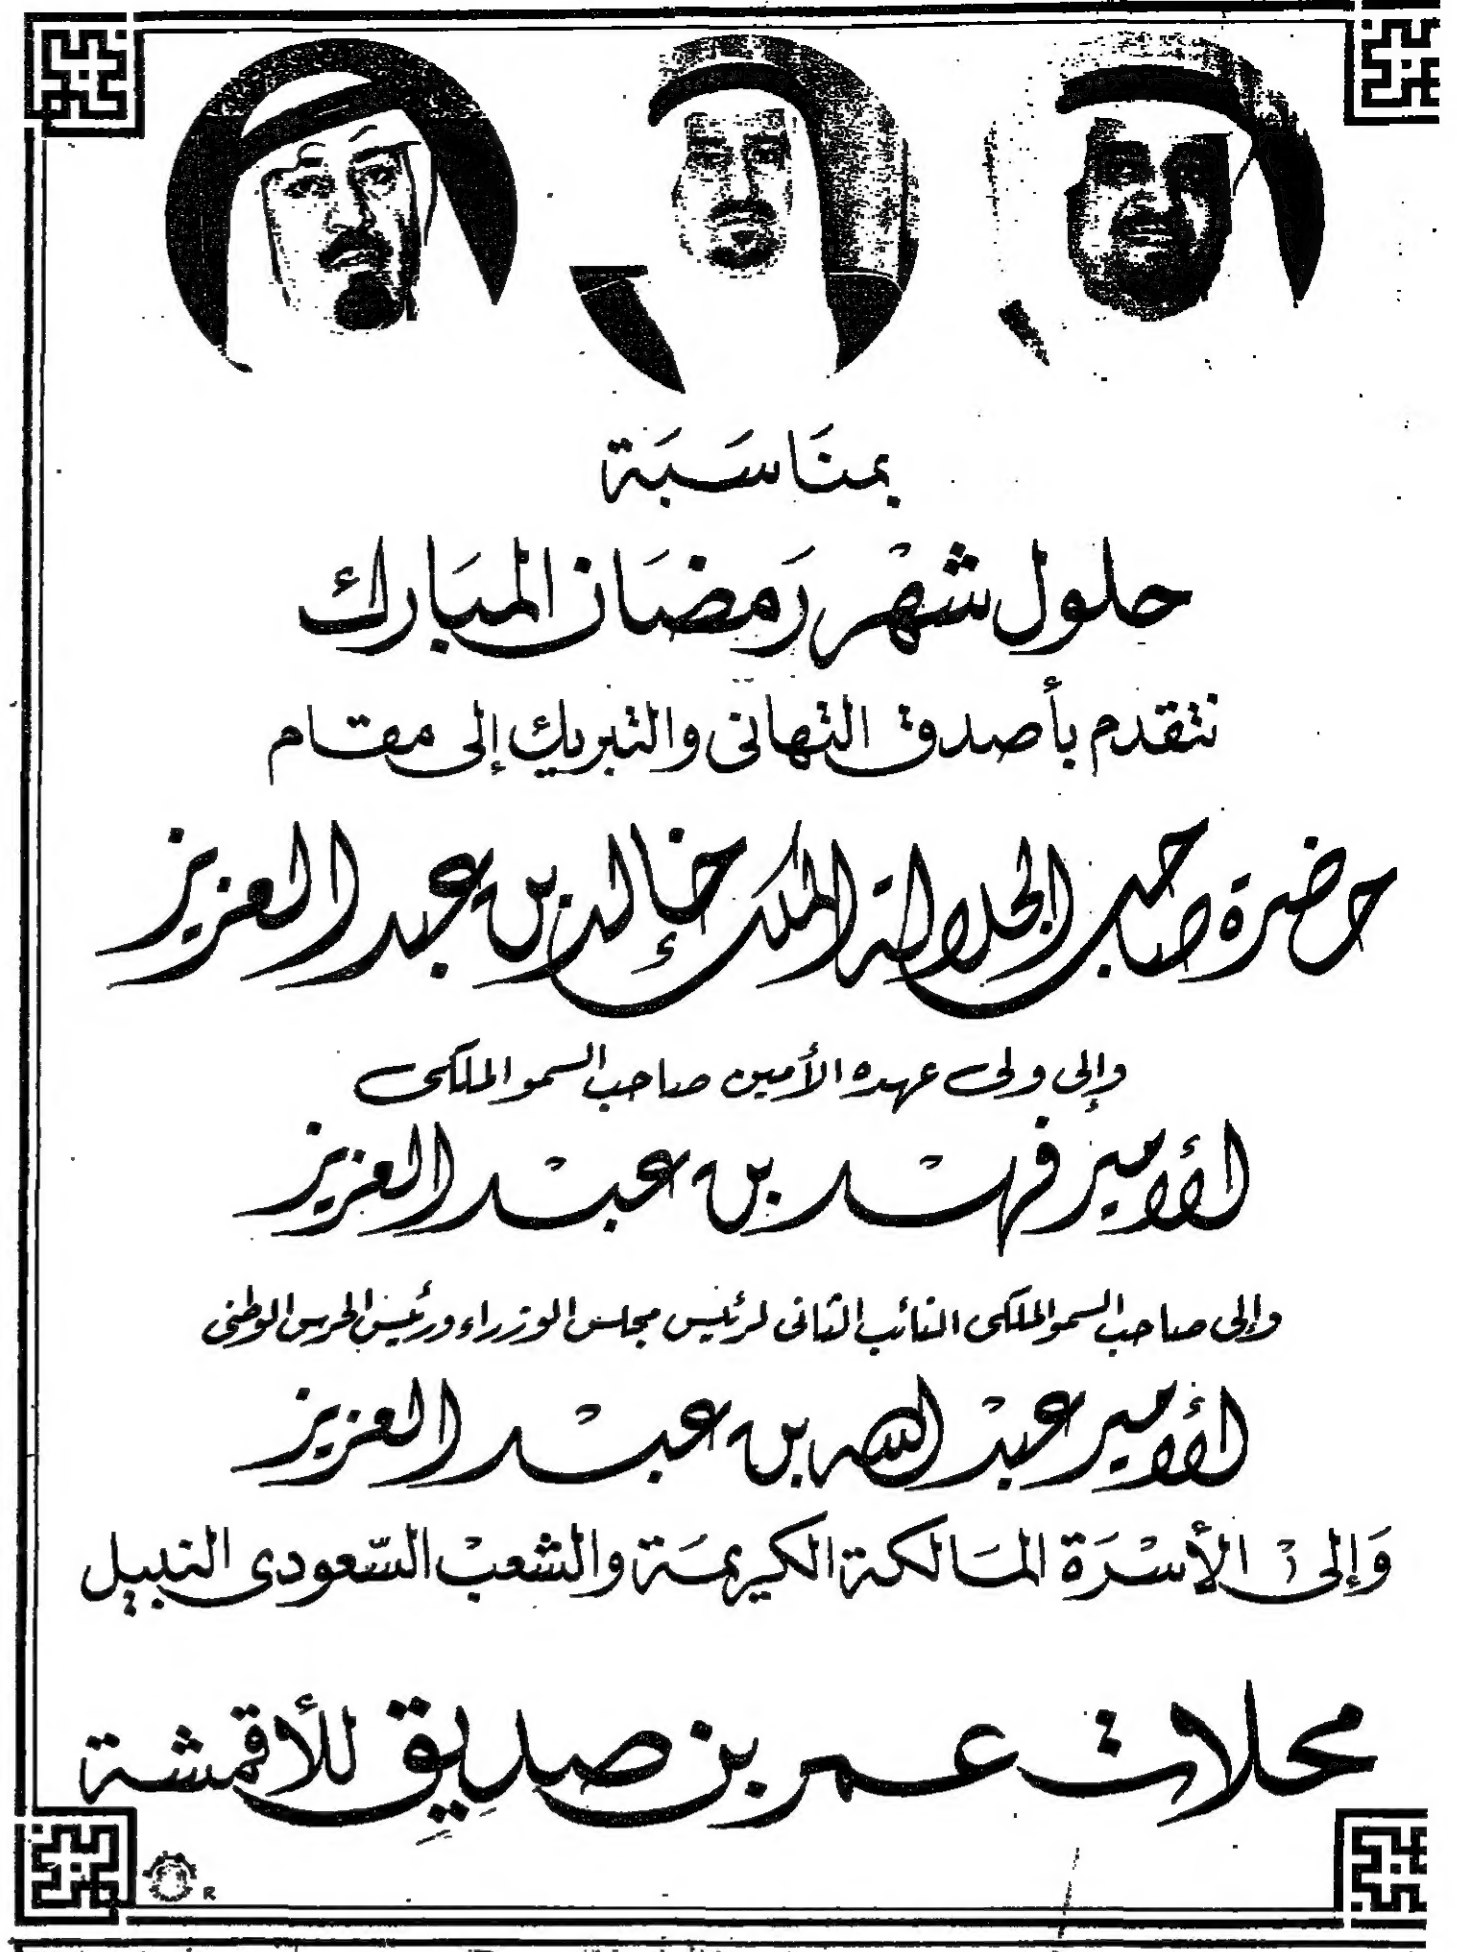 بمنَاسَبَة
حلول شهْر رَمضَان المبَارك
نتقدم بأصدق التهانى والتبريك إلى مقام
حضرة صاحب الجلالة الملك خالد بن عبد العزيز
وإلى ولى عهده الأمين صاحب السمو الملكى
الأمير فهْد بن عبْد العزيز
وإلى صاحب السمو الملكى النائب الثانى لرئيس مجلس الوزراء ورئيس الحرس الوطنى
الأمير عبْد الله بن عبْد العزيز
وَإلىْ الأسْرَة المَالكة الكريمَة والشعبْ السّعودى النبيل
محلات عمر بن صديق للأقمشة
R